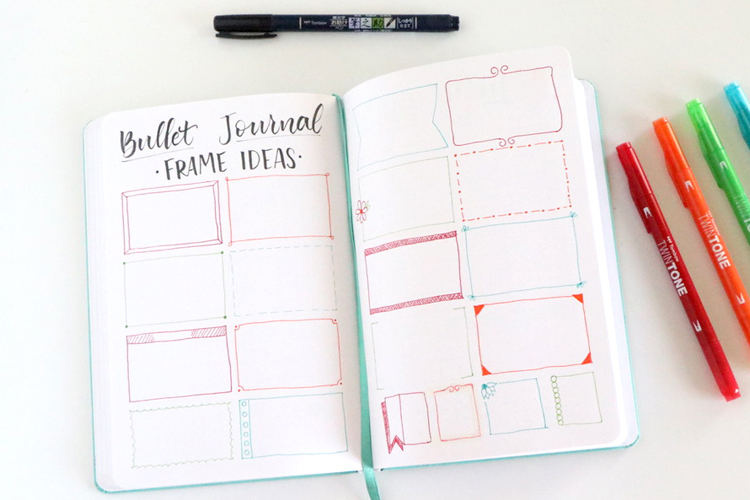 Bullet Journal
• FRAME IDEAS •
TWINTONE
TWINTONE